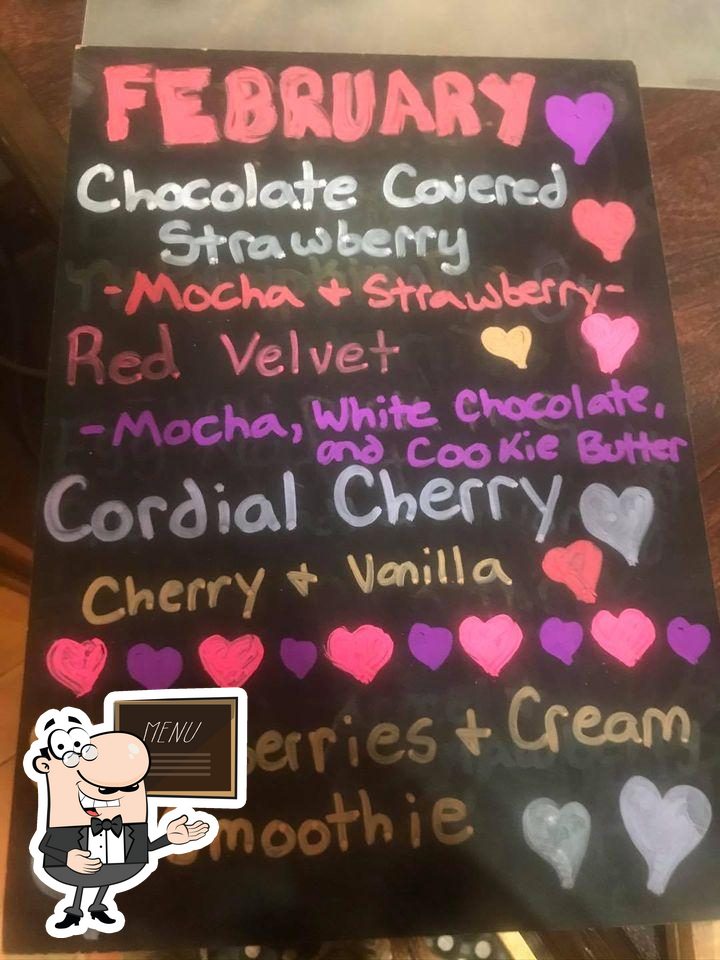 FEBRUARY
Chocolate Covered
Strawberry
-Mocha + Strawberry-
Red Velvet
-Mocha, White Chocolate,
and Cookie Butter
Cordial Cherry
Cherry + Vanilla
MENU
erries + Cream
Smoothie